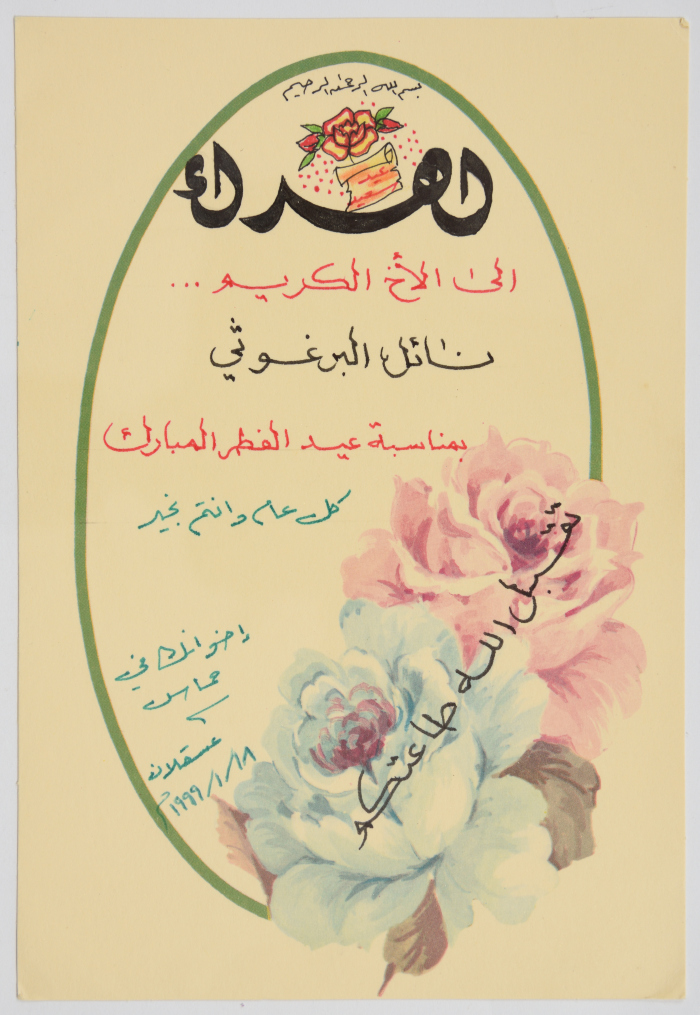 بسم الله الرحمن الرحيم
اهداء
عيد سعيد
الى الأخ الكريم ...
نائل البرغوثي
بمناسبة عيد الفطر المبارك
كل عام وانتم بخير
تقبل الله طاعتكم
اخوانك في
حماس
عسقلان
١٩٩٩/١/١٨م